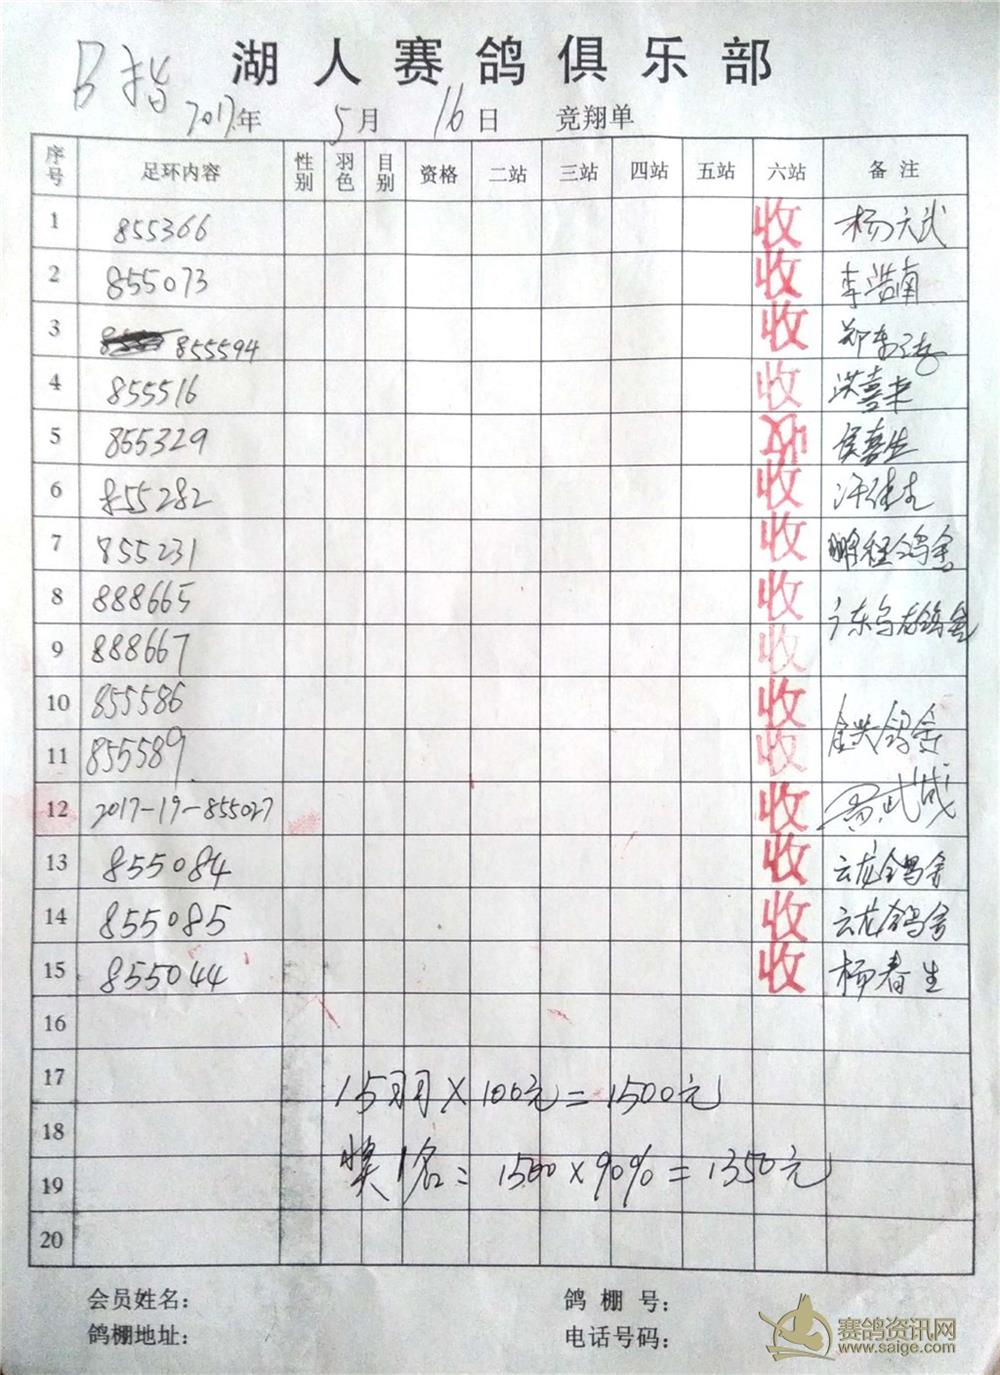 B 指
湖人赛鸽俱乐部
2017年 5月 16日 竞翔单
序号 足环内容 性别 羽色 目别 资格 二站 三站 四站 五站 六站 备注
1 855366 收 杨六武
2 855073 收 李浩南
3 855594 收
4 855516 收 洪喜来
5 855329 侯喜生
6 855282 收
7 855231 收 鹏程鸽舍
8 888665 收 广东乌龙鸽舍
9 888667 收
10 855586 收
11 855589 收
12 2017-19-855027 收
13 855084 收 云龙鸽舍
14 855085 收 云龙鸽舍
15 855044 收 杨春生
16
17 15羽×100元=1500元
18
19 奖1名:1500×90%=1350元
20
会员姓名: 鸽棚号:
鸽棚地址: 电话号码:
赛鸽资讯网
www.saige.com